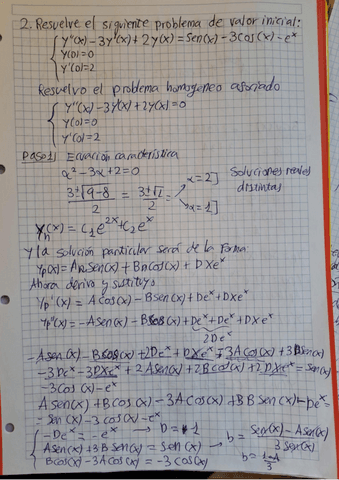 2. Resuelve el siguiente problema de valor inicial:
y''(x)-3y'(x)+2y(x)=sen(x)-3cos(x)-e^x
y(0)=0
y'(0)=2
Resuelvo el problema homogeneo asociado
y''(x)-3y'(x)+2y(x)=0
y(0)=0
y'(0)=2
Paso 1 Ecuación característica
α²-3α+2=0
3±√9-8 / 2 = 3±√1 / 2 α=2 α=1 ] Soluciones reales distintas
Yh(x)=C1e^2x+C2e^x
y la solución particular será de la forma:
Yp(x)=A sen(x)+B cos(x)+DXe^x
Ahora derivo y sustituyo
Yp'(x)=A cos(x)-B sen(x)+De^x+DXe^x
Yp''(x)=-A sen(x)-B cos(x)+De^x+De^x+DXe^x
2De^x
-A sen(x)-B cos(x)+2De^x+DXe^x-3A cos(x)+3B sen(x)
-3De^x-3DXe^x+2A sen(x)+2B cos(x)+2DXe^x=sen(x)
-3cos(x)-e^x
A sen(x)+B cos(x)-3A cos(x)+3B sen(x)-De^x=
=sen(x)-3cos(x)-e^x
-De^x=-e^x → D=1
A sen(x)+3B sen(x)=sen(x) → b=sen(x)-A sen(x) / 3 sen(x)
B cos(x)-3A cos(x)=-3cos(x) b=1-A / 3